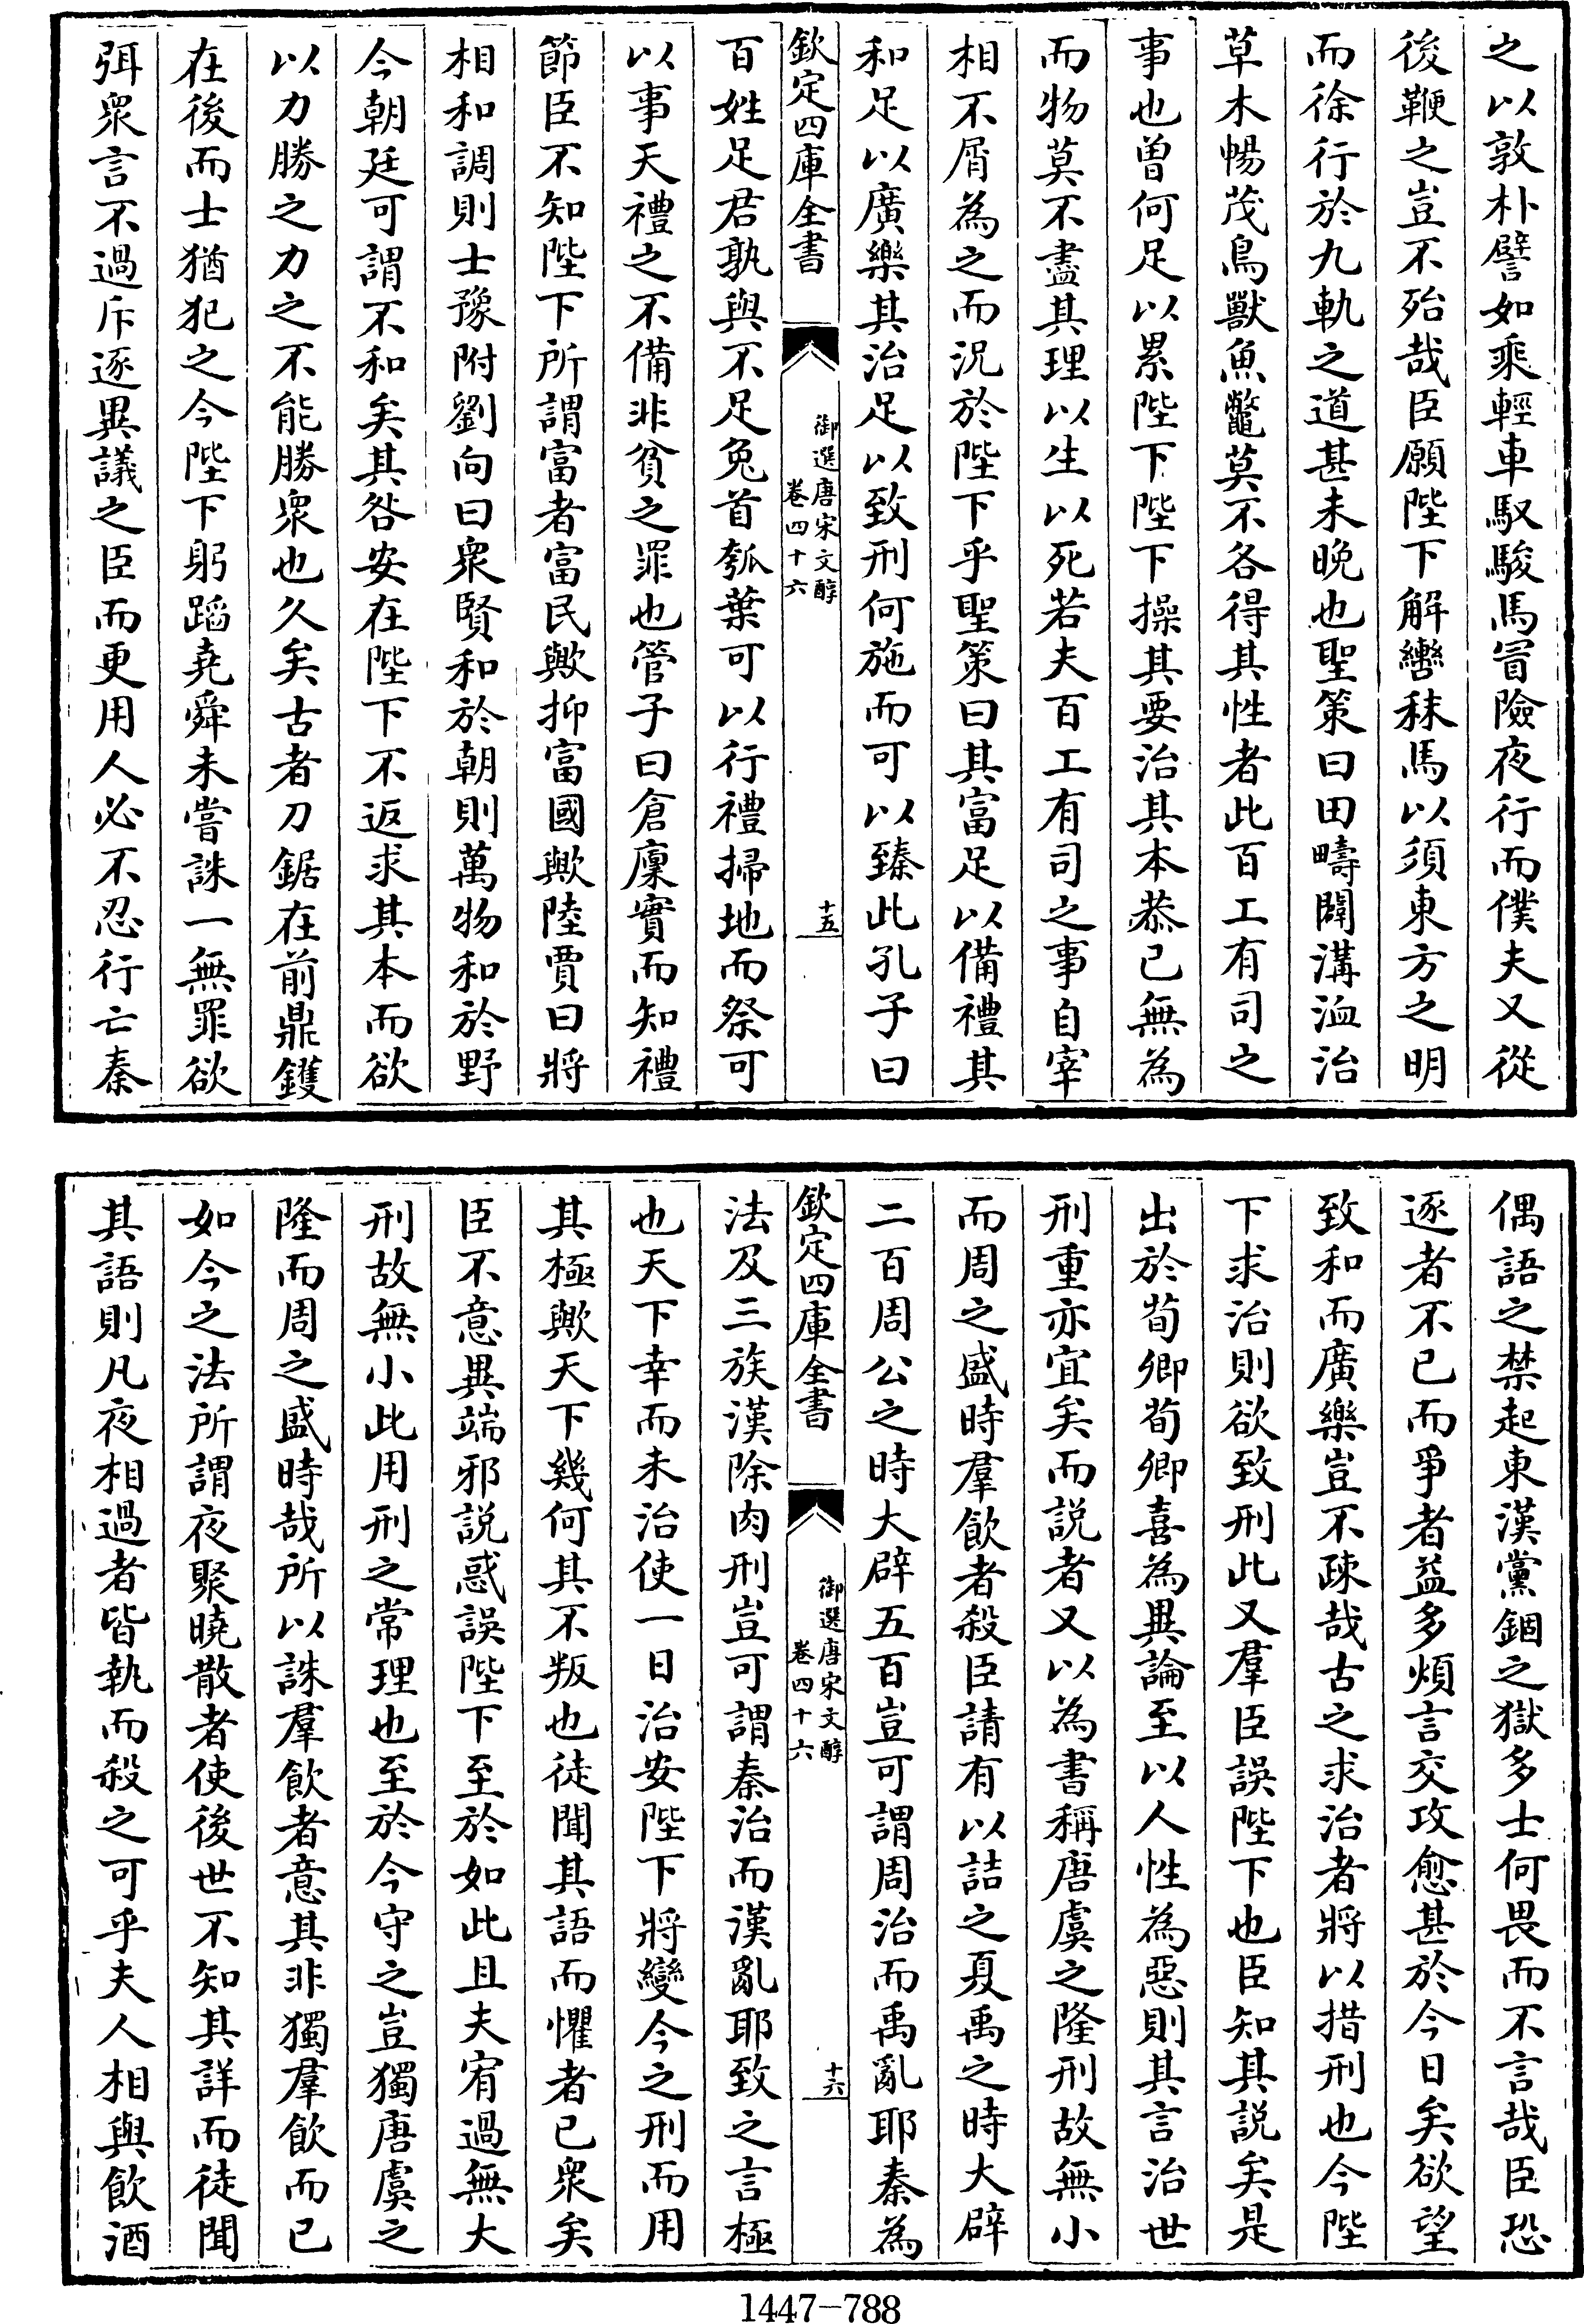 之以敦朴譬如乘輕車馭駿馬冒險夜行而僕夫又從
後鞭之豈不殆哉臣願陛下解轡秣馬以須東方之明
而徐行於九軌之道甚未晚也聖策曰田疇闢溝洫治
草木暢茂鳥獸魚鼈莫不各得其性者此百工有司之
事也曾何足以累陛下陛下操其要治其本恭己無為
而物莫不盡其理以生以死若夫百工有司之事自宰
相不屑為之而況於陛下乎聖策曰其富足以備禮其
和足以廣樂其治足以致刑何施而可以臻此孔子曰
欽定四庫全書
御選唐宋文醇
卷四十六
十五
百姓足君孰與不足兔首瓠葉可以行禮掃地而祭可
以事天禮之不備非貧之罪也管子曰倉廩實而知禮
節臣不知陛下所謂富者富民歟抑富國歟陸賈曰將
相和調則士豫附劉向曰衆賢和於朝則萬物和於野
今朝廷可謂不和矣其咎安在陛下不返求其本而欲
以力勝之力之不能勝衆也久矣古者刀鋸在前鼎鑊
在後而士猶犯之今陛下躬蹈堯舜未嘗誅一無罪欲
弭衆言不過斥逐異議之臣而更用人必不忍行亡秦
偶語之禁起東漢黨錮之獄多士何畏而不言哉臣恐
逐者不已而爭者益多煩言交攻愈甚於今日矣欲望
致和而廣樂豈不疎哉古之求治者將以措刑也今陛
下求治則欲致刑此又羣臣誤陛下也臣知其説矣是
出於荀卿荀卿喜為異論至以人性為惡則其言治世
刑重亦宜矣而説者又以為書稱唐虞之隆刑故無小
而周之盛時羣飲者殺臣請有以詰之夏禹之時大辟
二百周公之時大辟五百豈可謂周治而禹亂耶秦為
欽定四庫全書
御選唐宋文醇
卷四十六
十六
法及三族漢除肉刑豈可謂秦治而漢亂耶致之言極
也天下幸而未治使一日治安陛下將變今之刑而用
其極歟天下幾何其不叛也徒聞其語而懼者已衆矣
臣不意異端邪説惑誤陛下至於如此且夫宥過無大
刑故無小此用刑之常理也至於今守之豈獨唐虞之
隆而周之盛時哉所以誅羣飲者意其非獨羣飲而已
如今之法所謂夜聚曉散者使後世不知其詳而徒聞
其語則凡夜相過者皆執而殺之可乎夫人相與飲酒
1447-788